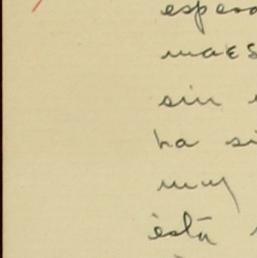 espera
maes
sin
ha si
muy
está